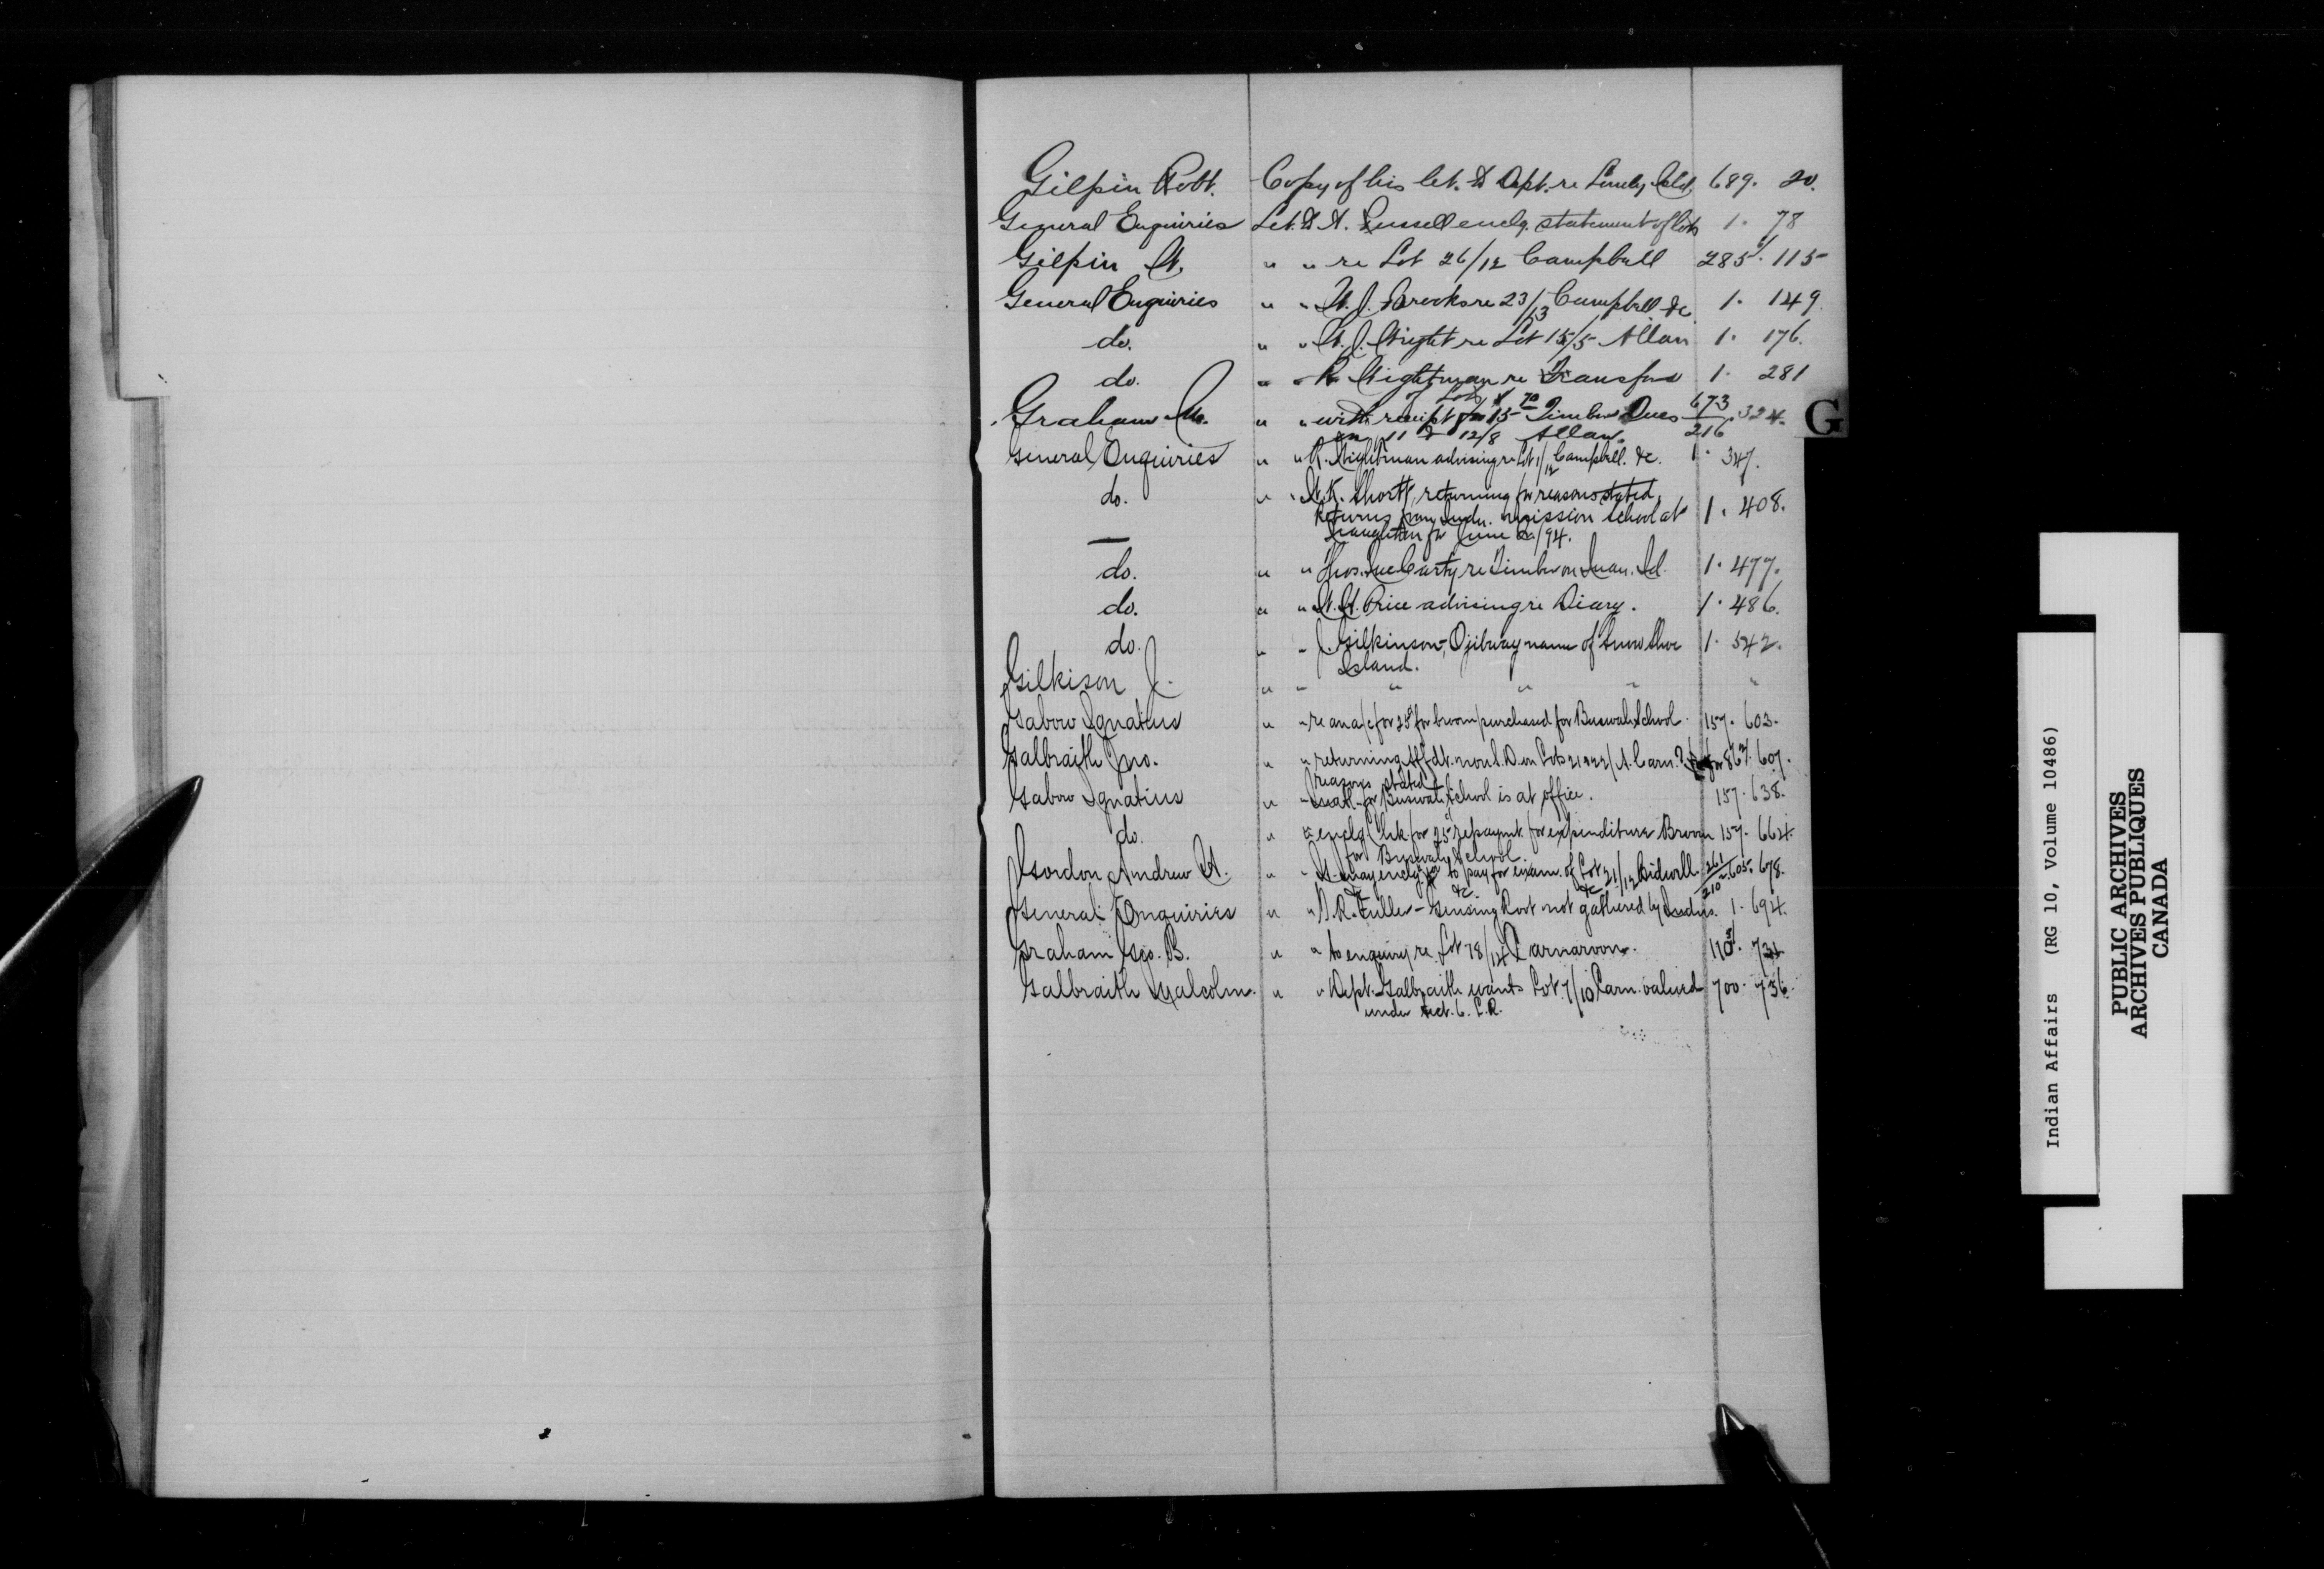 Gilpin Robt. Copy of his let. to Dept. re Lonely Isld. 689. 20.
General Enquiries Let. to A. Russell enclg. statement of lots 1. 78
Gilpin W. " " re Lot 26/12 Campbell 285. 115
General Enquiries " " W. J. Brooks re 23/13 Campbell &c 1. 149
do. " " W. J. Wright re Lot 15/5 Allan 1. 176.
do. " " R. Wightman re Transfers 1. 281
of Lots
Graham " " with receipt for 15 70 Timber Dues 673/216 . 324.
on 11 & 12/8 Allan.
G
General Enquiries " " R. Wightman advising re Lot 1/12 Campbell. &c. 1. 347.
do. " " Shortt, returning for reasons stated,
Returns from Indn. Mission School at 1. 408.
for June /94.
do. " " Thos. McCarty re Timber on Isl. 1. 477.
do. " " Price advising re Diary. 1. 486.
do. " " J. Gilkinson, Ojibway name of Snow Shoe 1. 542.
Island.
Gilkison J. " " " " " "
Gabow Ignatius " " re an a/c for 25¢ for broom purchased for Buswah School. 157. 603.
Galbraith Jno. " " returning Affdt. non A. D. on Lots 21 & 22/ A. Carn. for 607.
reasons stated
Gabow Ignatius " " for Buswah School is at office. 157. 638.
do. " " enclg. Chk. for 25¢ repaymt. for expenditure Broom 157. 664.
for Buswah School.
Gordon Andrew H. " " may enclg. to pay for exam. of Lot 21/12 Bidwell 261/210 . 605. 678.
&c &c
General Enquiries " " R. Fuller - Gensing Root not gathered by Indns. 1. 694.
Graham Geo. B. " " to enquiry re Lot 18/12 Carnarvon. 110. 732
Galbraith Malcolm. " " Dept. Galbraith wants Lot 7/10 Carn. valued 700. 756.
under sect. 6. L.R.
Indian Affairs (RG 10, Volume 10486)
PUBLIC ARCHIVES
ARCHIVES PUBLIQUES
CANADA